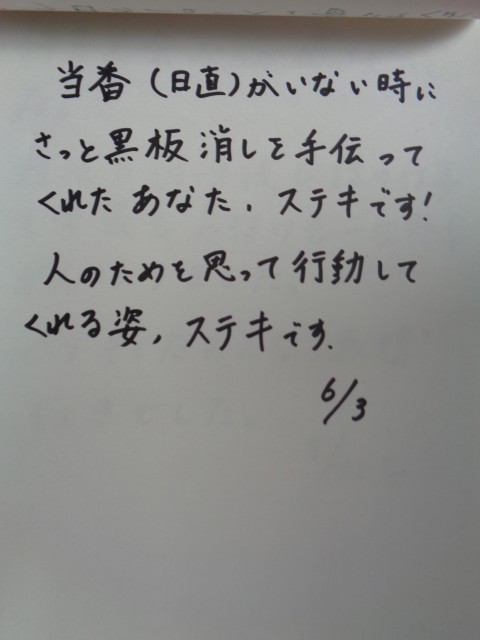 当番(日直)がいない時に
さっと黒板消しを手伝って
くれたあなた、ステキです!
人のためを思って行動して
くれる姿、ステキです.
6/3